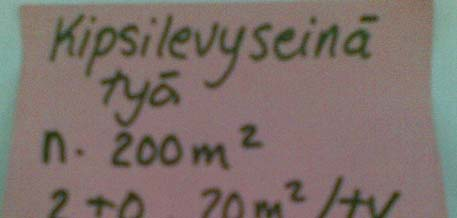 Kipsilevyseinä
työ
n. 200 m²
2 + 0 20 m² / tv